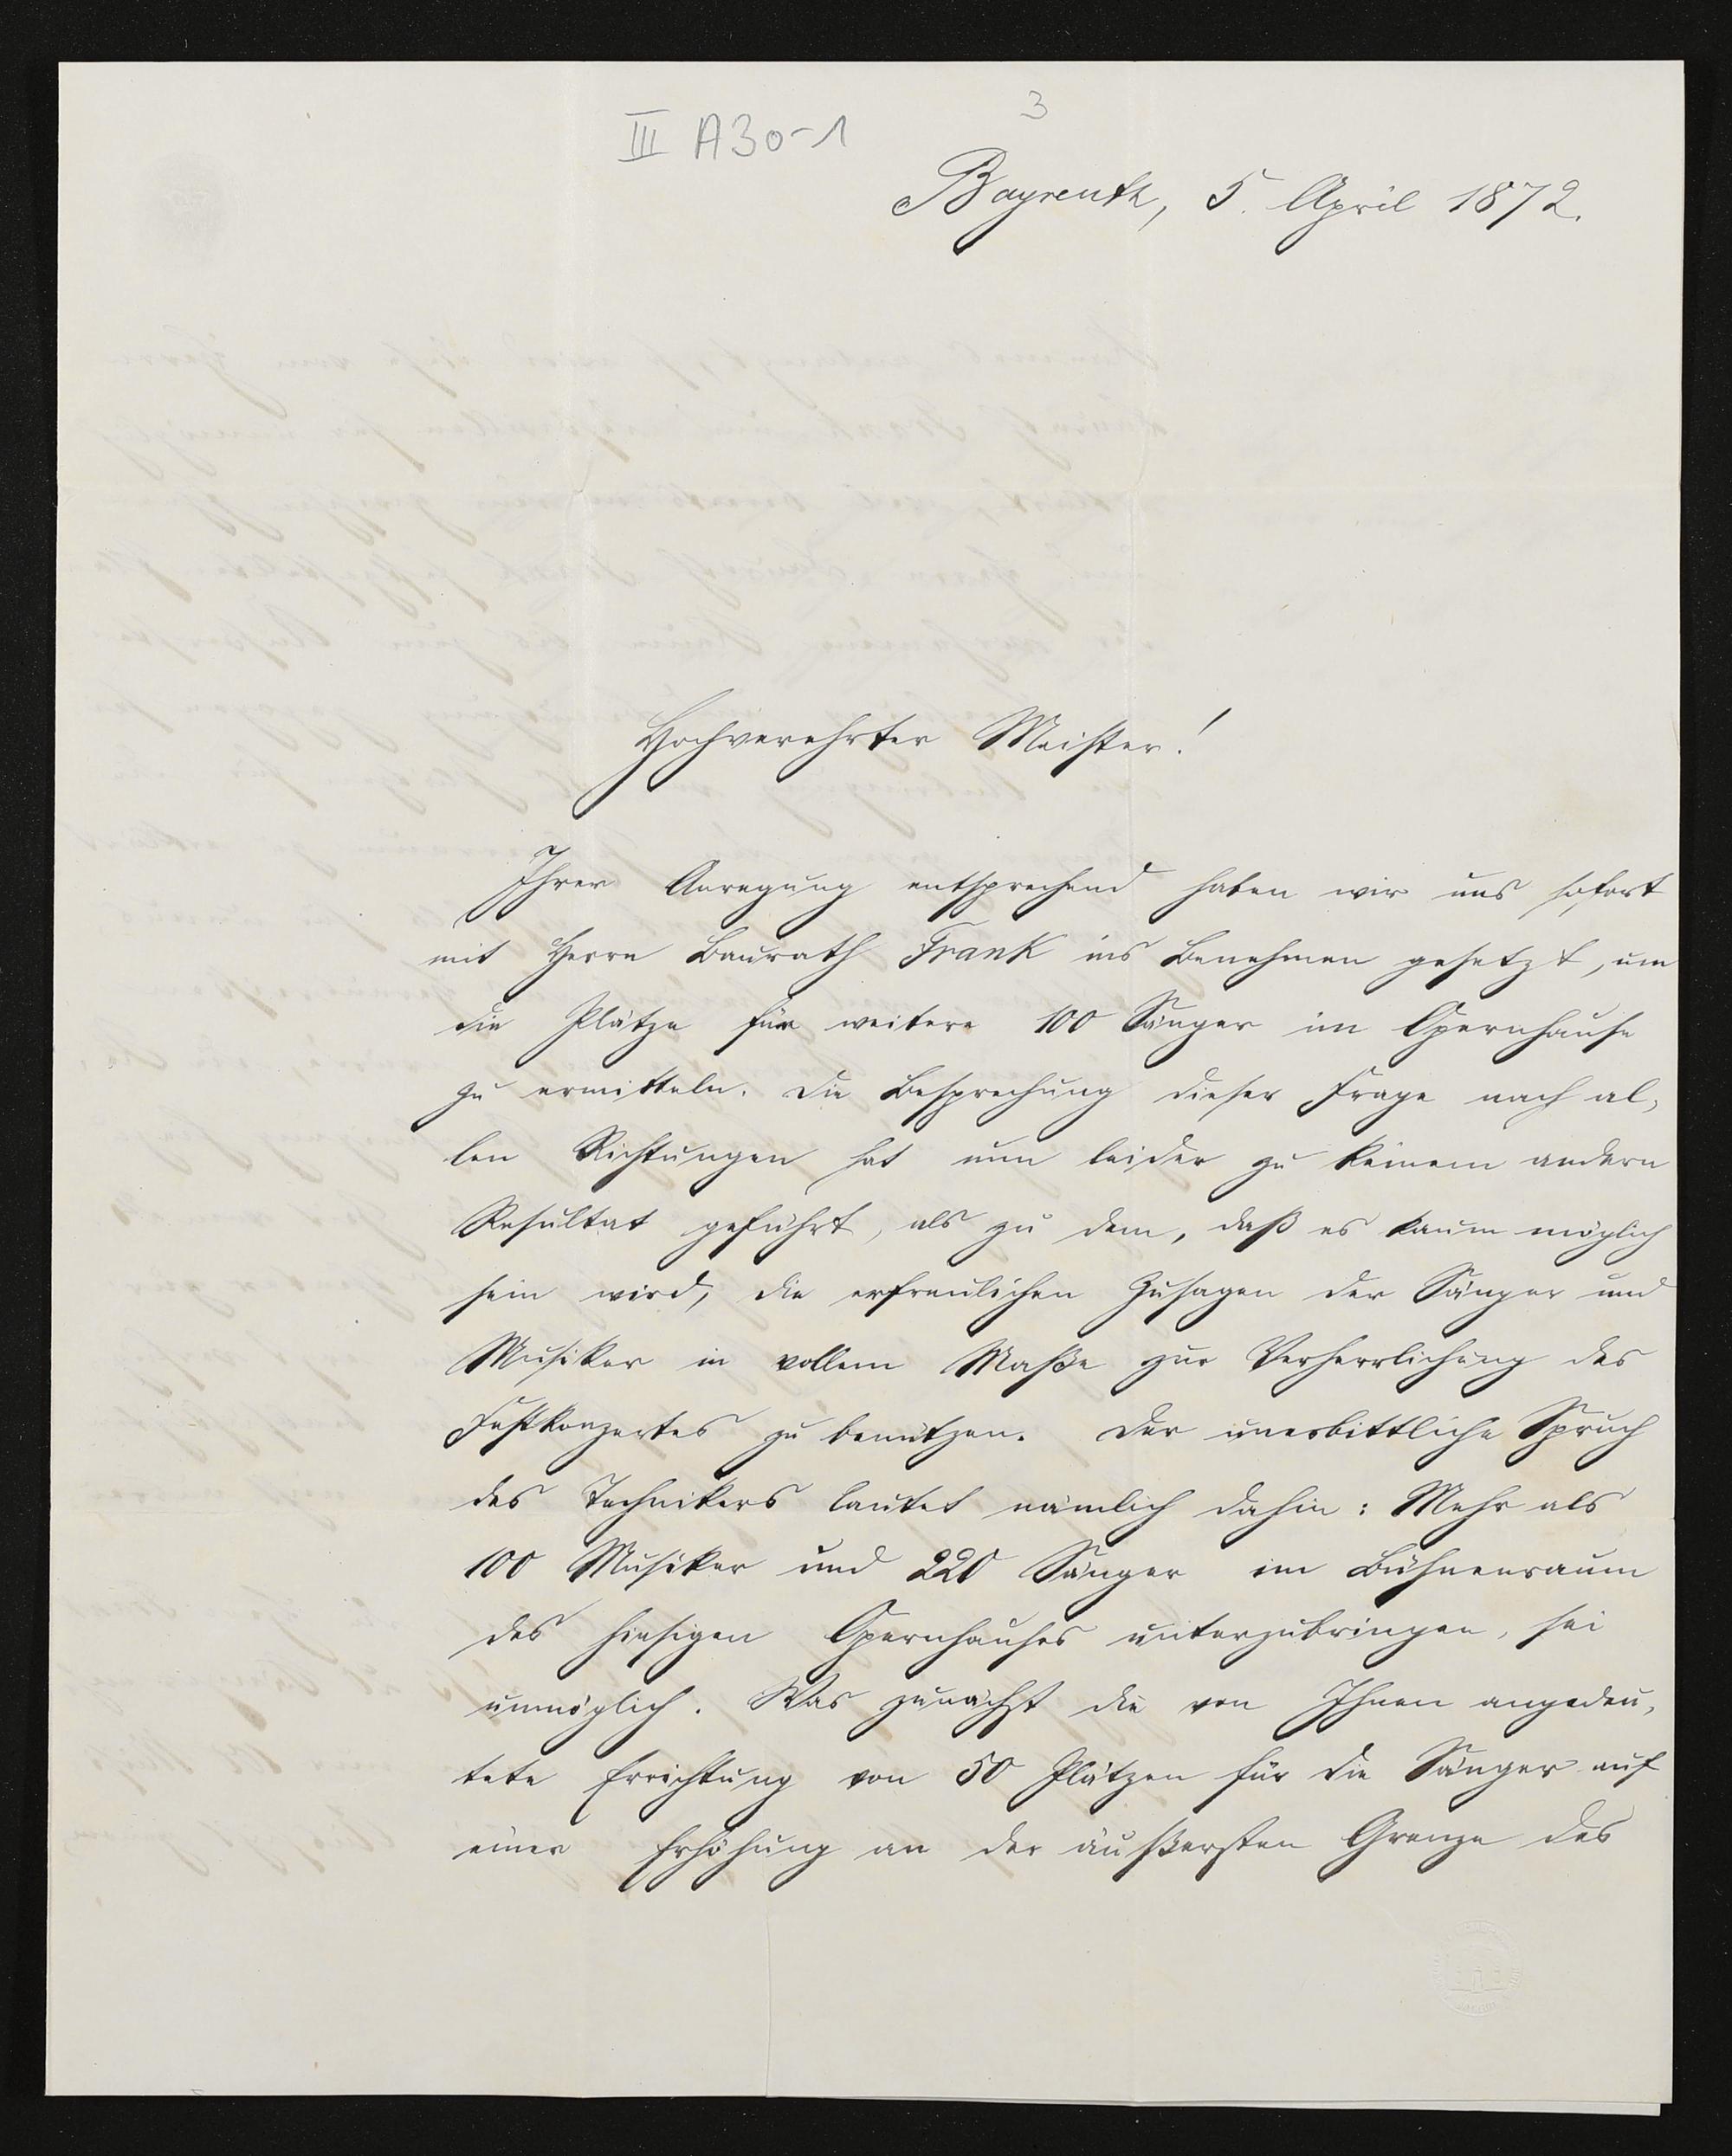 3
III A30-1
Bayreuth, 5. April 1872.
Hochverehrter Meister!
Ihrer Anregung entsprechend haben wir uns sofort
mit Herrn Baurath Frank ins Benehmen gesetzt, um
die Plätze für weitere 100 Sänger im Opernhause
zu ermitteln. Die Besprechung dieser Frage nach al-
len Richtungen hat nun leider zu keinem andern
Resultat geführt, als zu dem, daß es kaum möglich
sein wird, die erfreulichen Zusagen der Sänger und
Musiker in vollem Maße zur Verherrlichung des
Festkonzertes zu benützen. Der unerbittliche Spruch
des Technikers lautet nämlich dahin: Mehr als
100 Musiker und 220 Sänger im Bühnenraum
des hiesigen Opernhauses unterzubringen, sei
unmöglich. Was zunächst die von Ihnen angedeu-
tete Errichtung von 50 Plätzen für die Sänger auf
einer Erhöhung an der äußersten Grenze des